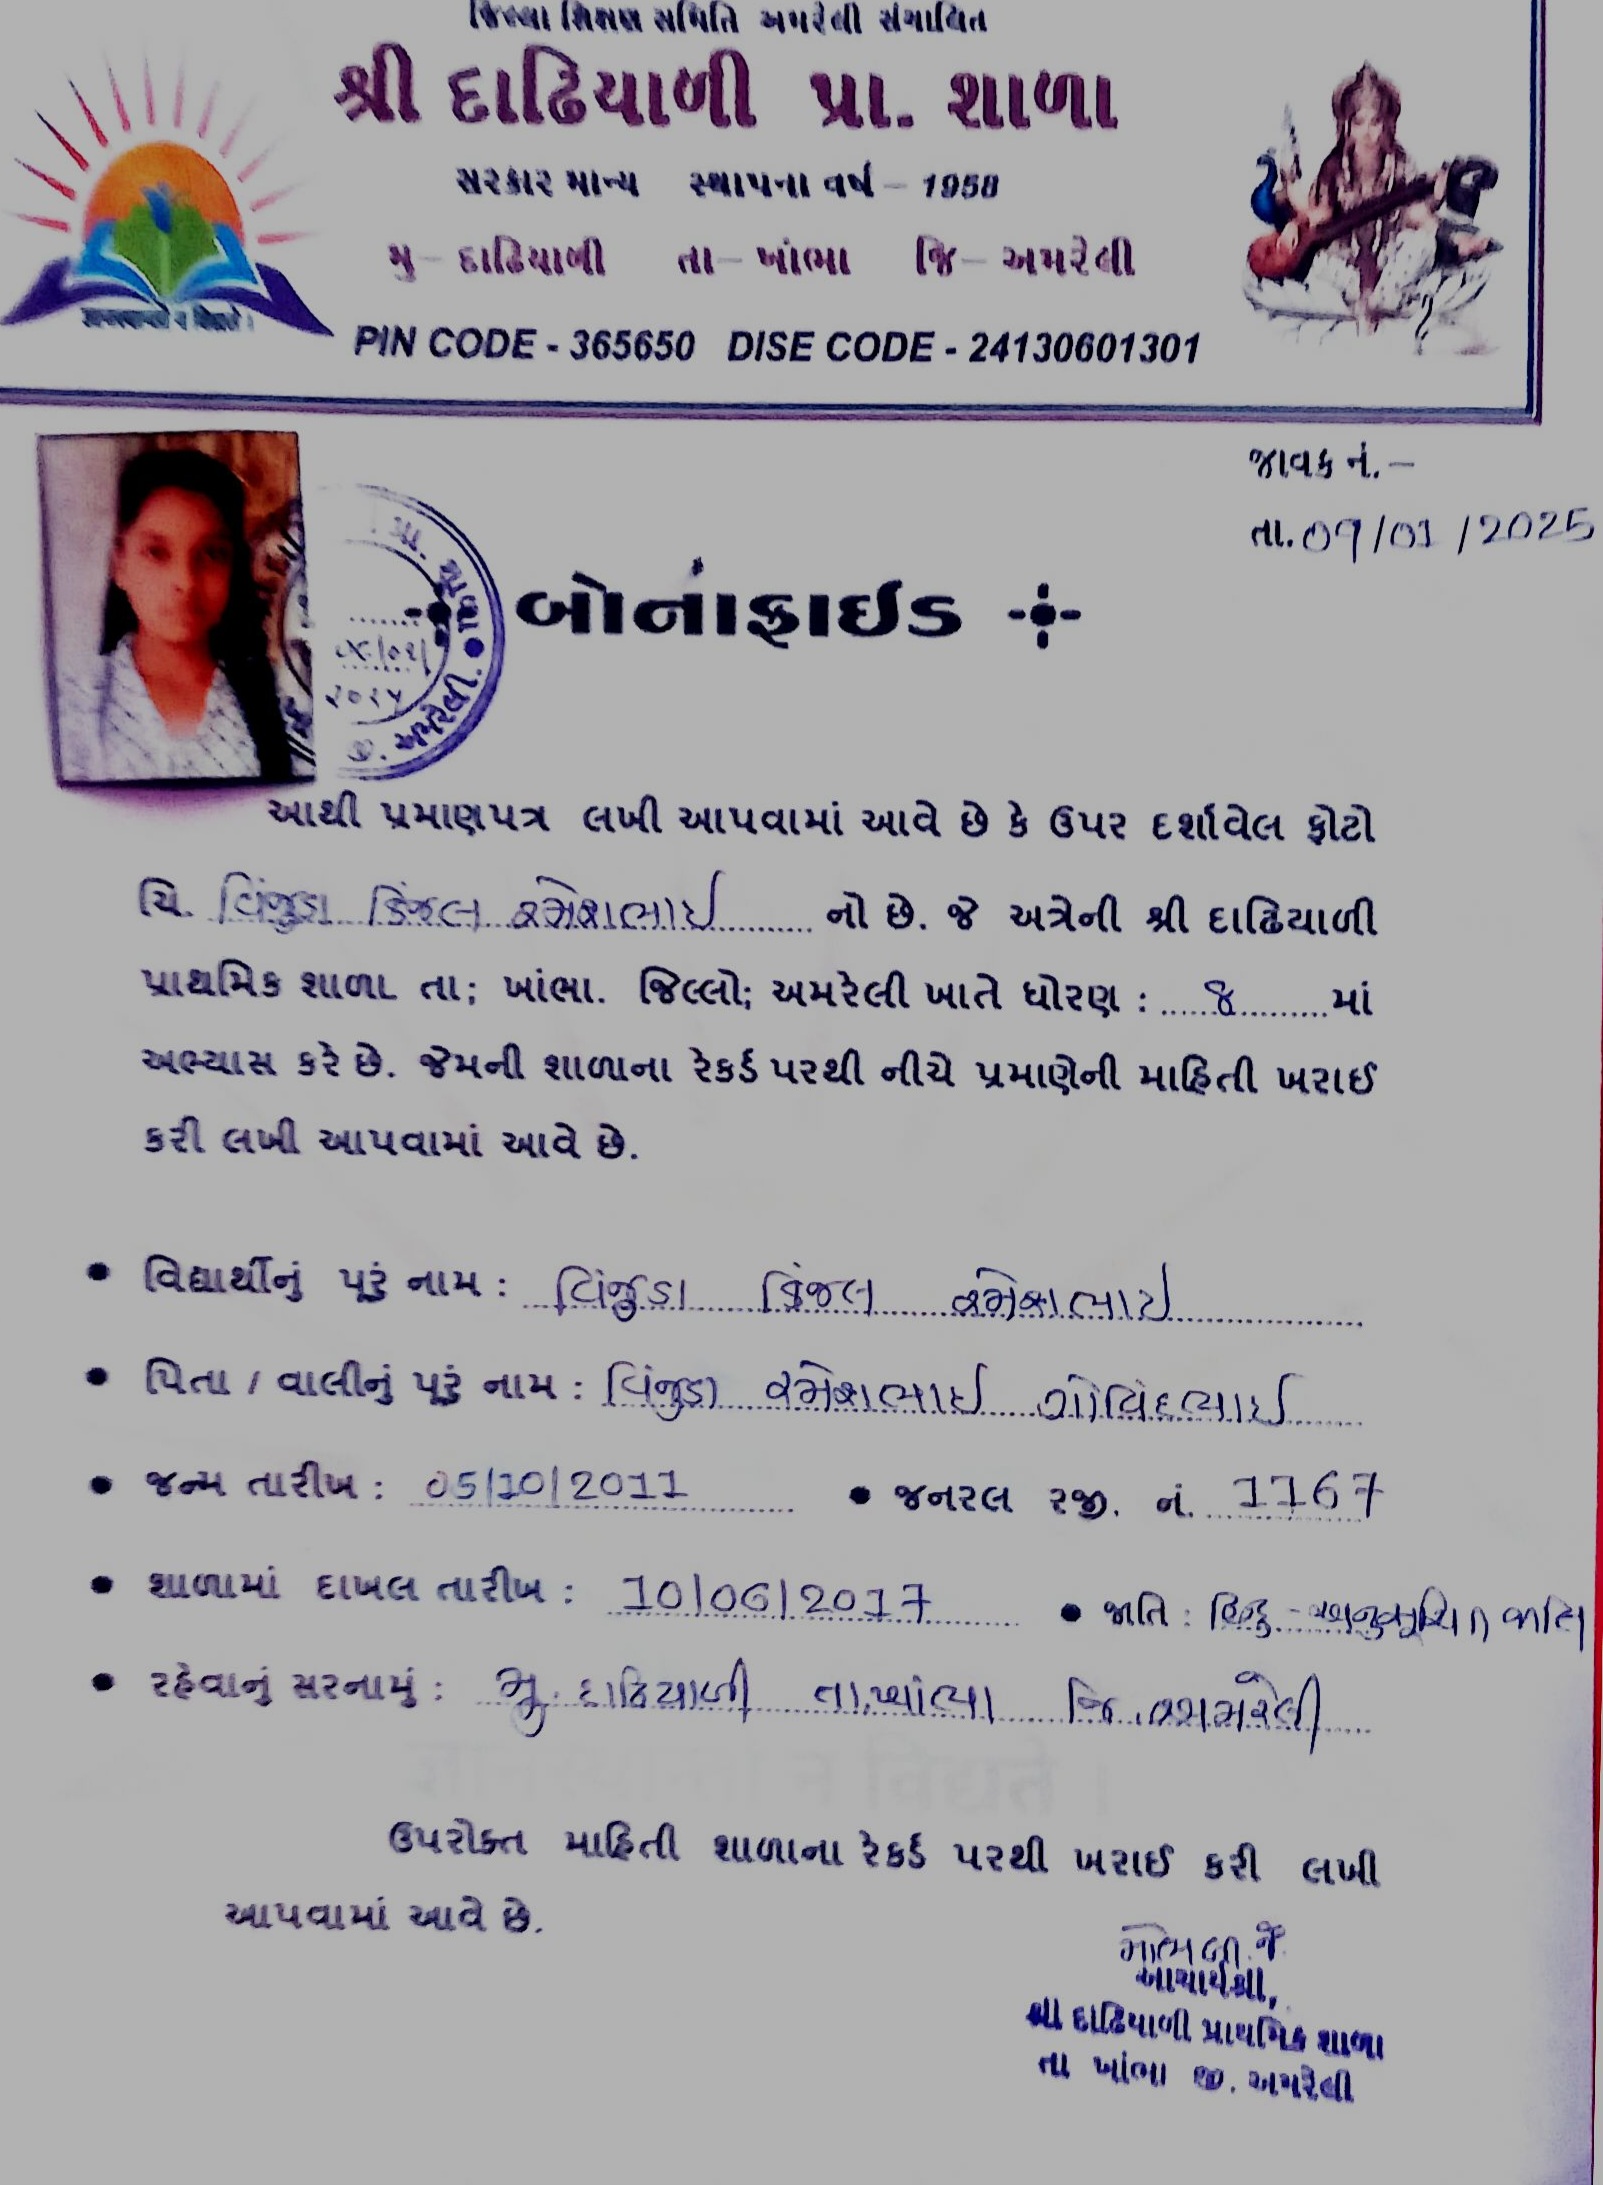 જિલ્લા શિક્ષણ સમિતિ અમરેલી સંચાલિત
શ્રી દાઢિયાળી પ્રા. શાળા
સરકાર માન્ય સ્થાપના વર્ષ - 1958
મુ - દાઢિયાળી તા - ખાંભા જિ - અમરેલી
PIN CODE - 365650 DISE CODE - 24130601301
જાવક નં. -
તા. 09/01/2025
પ્રા. શાળા
૨૦૨૫
જી. અમરેલી.
બોનાફાઈડ
આથી પ્રમાણપત્ર લખી આપવામાં આવે છે કે ઉપર દર્શાવેલ ફોટો
ચિ. વિંજુડા કિંજલ રમેશભાઈ નો છે. જે અત્રેની શ્રી દાઢિયાળી
પ્રાથમિક શાળા તા; ખાંભા. જિલ્લો; અમરેલી ખાતે ધોરણ : 8 માં
અભ્યાસ કરે છે. જેમની શાળાના રેકર્ડ પરથી નીચે પ્રમાણેની માહિતી ખરાઈ
કરી લખી આપવામાં આવે છે.
• વિદ્યાર્થીનું પૂરું નામ : વિંજુડા કિંજલ રમેશભાઈ
• પિતા / વાલીનું પૂરું નામ : વિંજુડા રમેશભાઈ ગોવિંદભાઈ
• જન્મ તારીખ : 05/10/2011 • જનરલ રજી. નં. 1167
• શાળામાં દાખલ તારીખ : 10/06/2017 • જાતિ : હિન્દુ - અનુસૂચિત જાતિ
• રહેવાનું સરનામું : મુ. દાઢિયાળી તા. ખાંભા જિ. અમરેલી
ઉપરોક્ત માહિતી શાળાના રેકર્ડ પરથી ખરાઈ કરી લખી
આપવામાં આવે છે.
આચાર્યશ્રી,
શ્રી દાઢિયાળી પ્રાથમિક શાળા
તા ખાંભા જી. અમરેલી